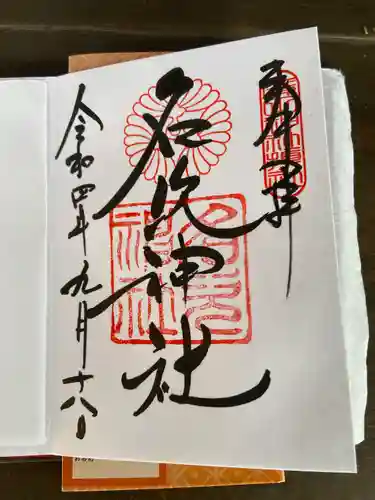 奉拝
名次神社
令和四年九月十八日
名次
神社